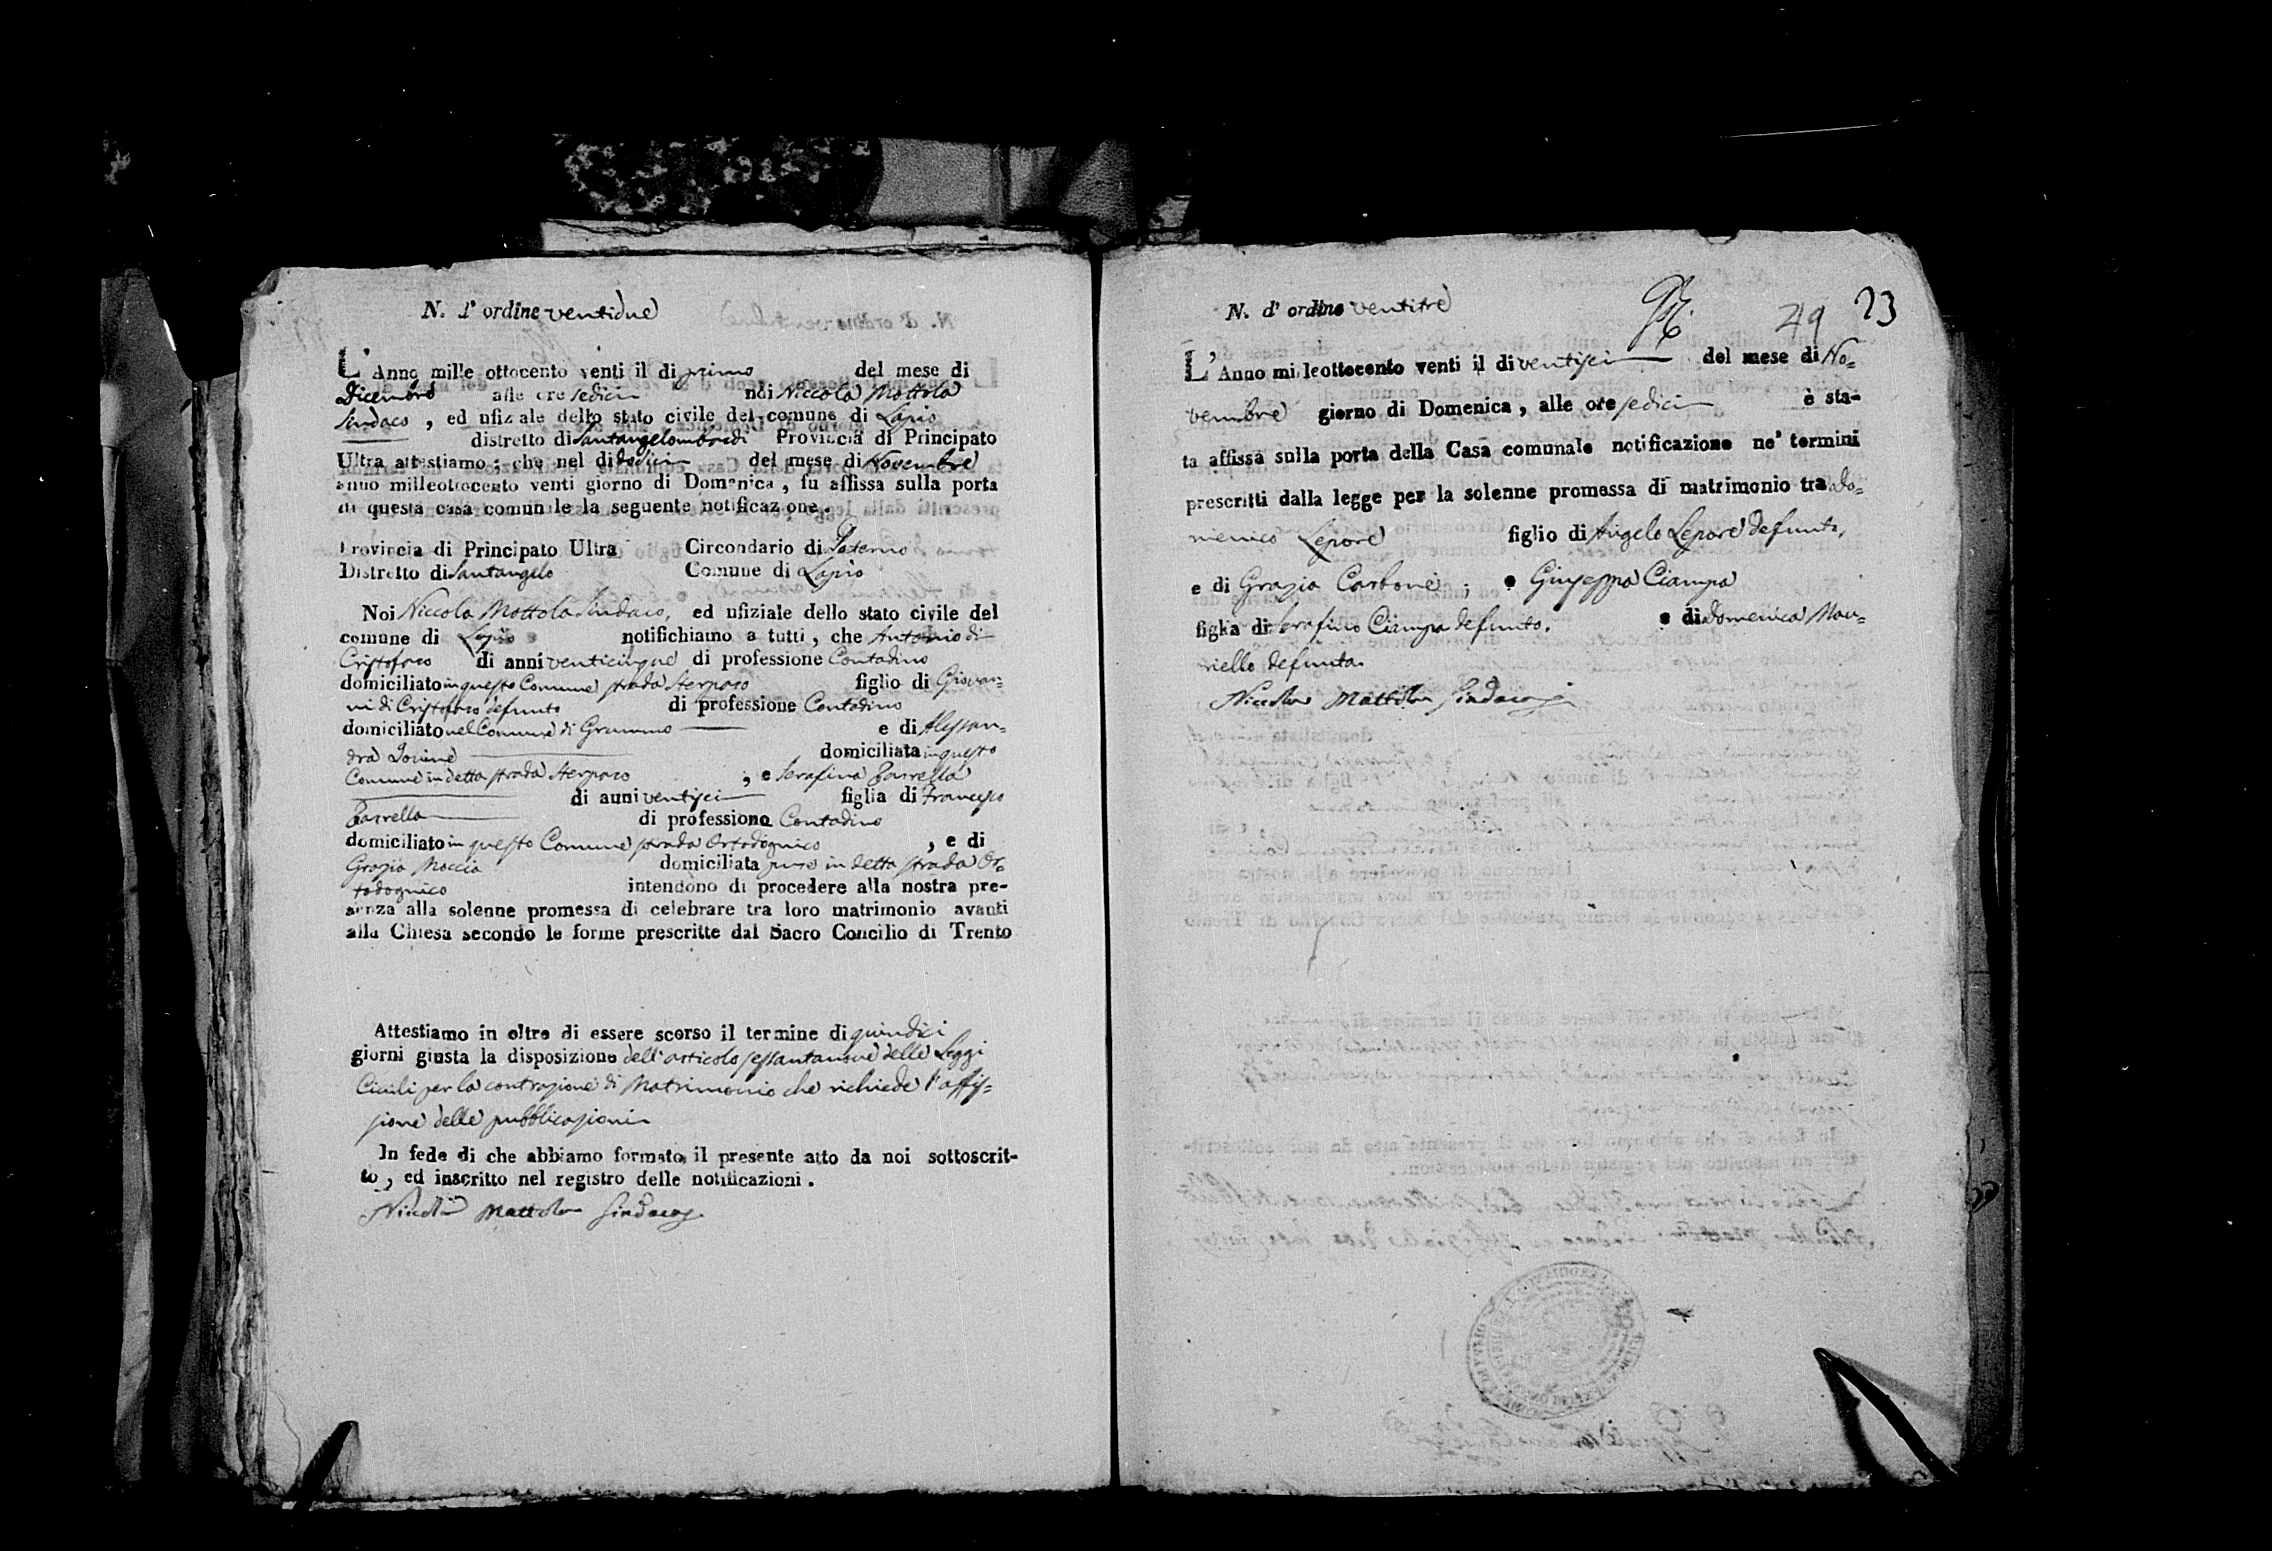 N. d' ordine ventidue
L' Anno mille ottocento venti il di primo del mese di
Dicembre alle ore sedici noi Niccola Mottola
Sindaco , ed ufiziale dello stato civile del comune di Lapio
distretto di Santangelombardi Provincia di Principato
Ultra attestiamo ; che nel di dodici del mese di Novembre
anno milleottocento venti giorno di Domenica , fu affissa sulla porta
di questa casa comunale la seguente notificazione .
Provincia di Principato Ultra Circondario di Paterno
Distretto di Santangelo Comune di Lapio
Noi Niccola Mottola Sindaco, ed ufiziale dello stato civile del
comune di Lapio notifichiamo a tutti , che Antonio di
Cristofaro di anni venticinque di professione Contadino
domiciliato in questo Comune strada Sterparo figlio di Giovan=
ni di Cristofaro defunto di professione Contadino
domiciliato nel Comune di Grummo e di Alessan=
dra Iovine domiciliata in questo
Comune in detta strada Sterparo ; e Serafina Zarrella
di anni ventisei figlia di Francesco
Zarrella di professione Contadino
domiciliato in questo Comune strada Ortodognico , e di
Grazia Moccia domiciliata pure in detta strada Or=
todognico intendono di procedere alla nostra pre-
senza alla solenne promessa di celebrare tra loro matrimonio avanti
alla Chiesa secondo le forme prescritte dal Sacro Concilio di Trento
Attestiamo in oltre di essere scorso il termine di quindici
giorni giusta la disposizione dell'articolo sessantanove delle Leggi
Civili per la contrazione di Matrimonio che richiede l'affis=
sione delle pubblicazioni
In fede di che abbiamo formato il presente atto da noi sottoscrit-
to , ed inscritto nel registro delle notificazioni .
Niccola Mottola Sindaco
N. d' ordine ventitre 49 23
L' Anno milleottocento venti il di ventisei del mese di No=
vembre giorno di Domenica , alle ore sedici è sta-
ta affissa sulla porta della Casa comunale notificazione ne' termini
prescritti dalla legge per la solenne promessa di matrimonio tra Do=
menico Lepore figlio di Angelo Lepore defunto,
e di Grazia Carbone ; e Giuseppa Ciampa
figlia di Serafino Ciampa defunto. e di Domenica Mau=
riello defunta.
Niccola Mottola Sindaco